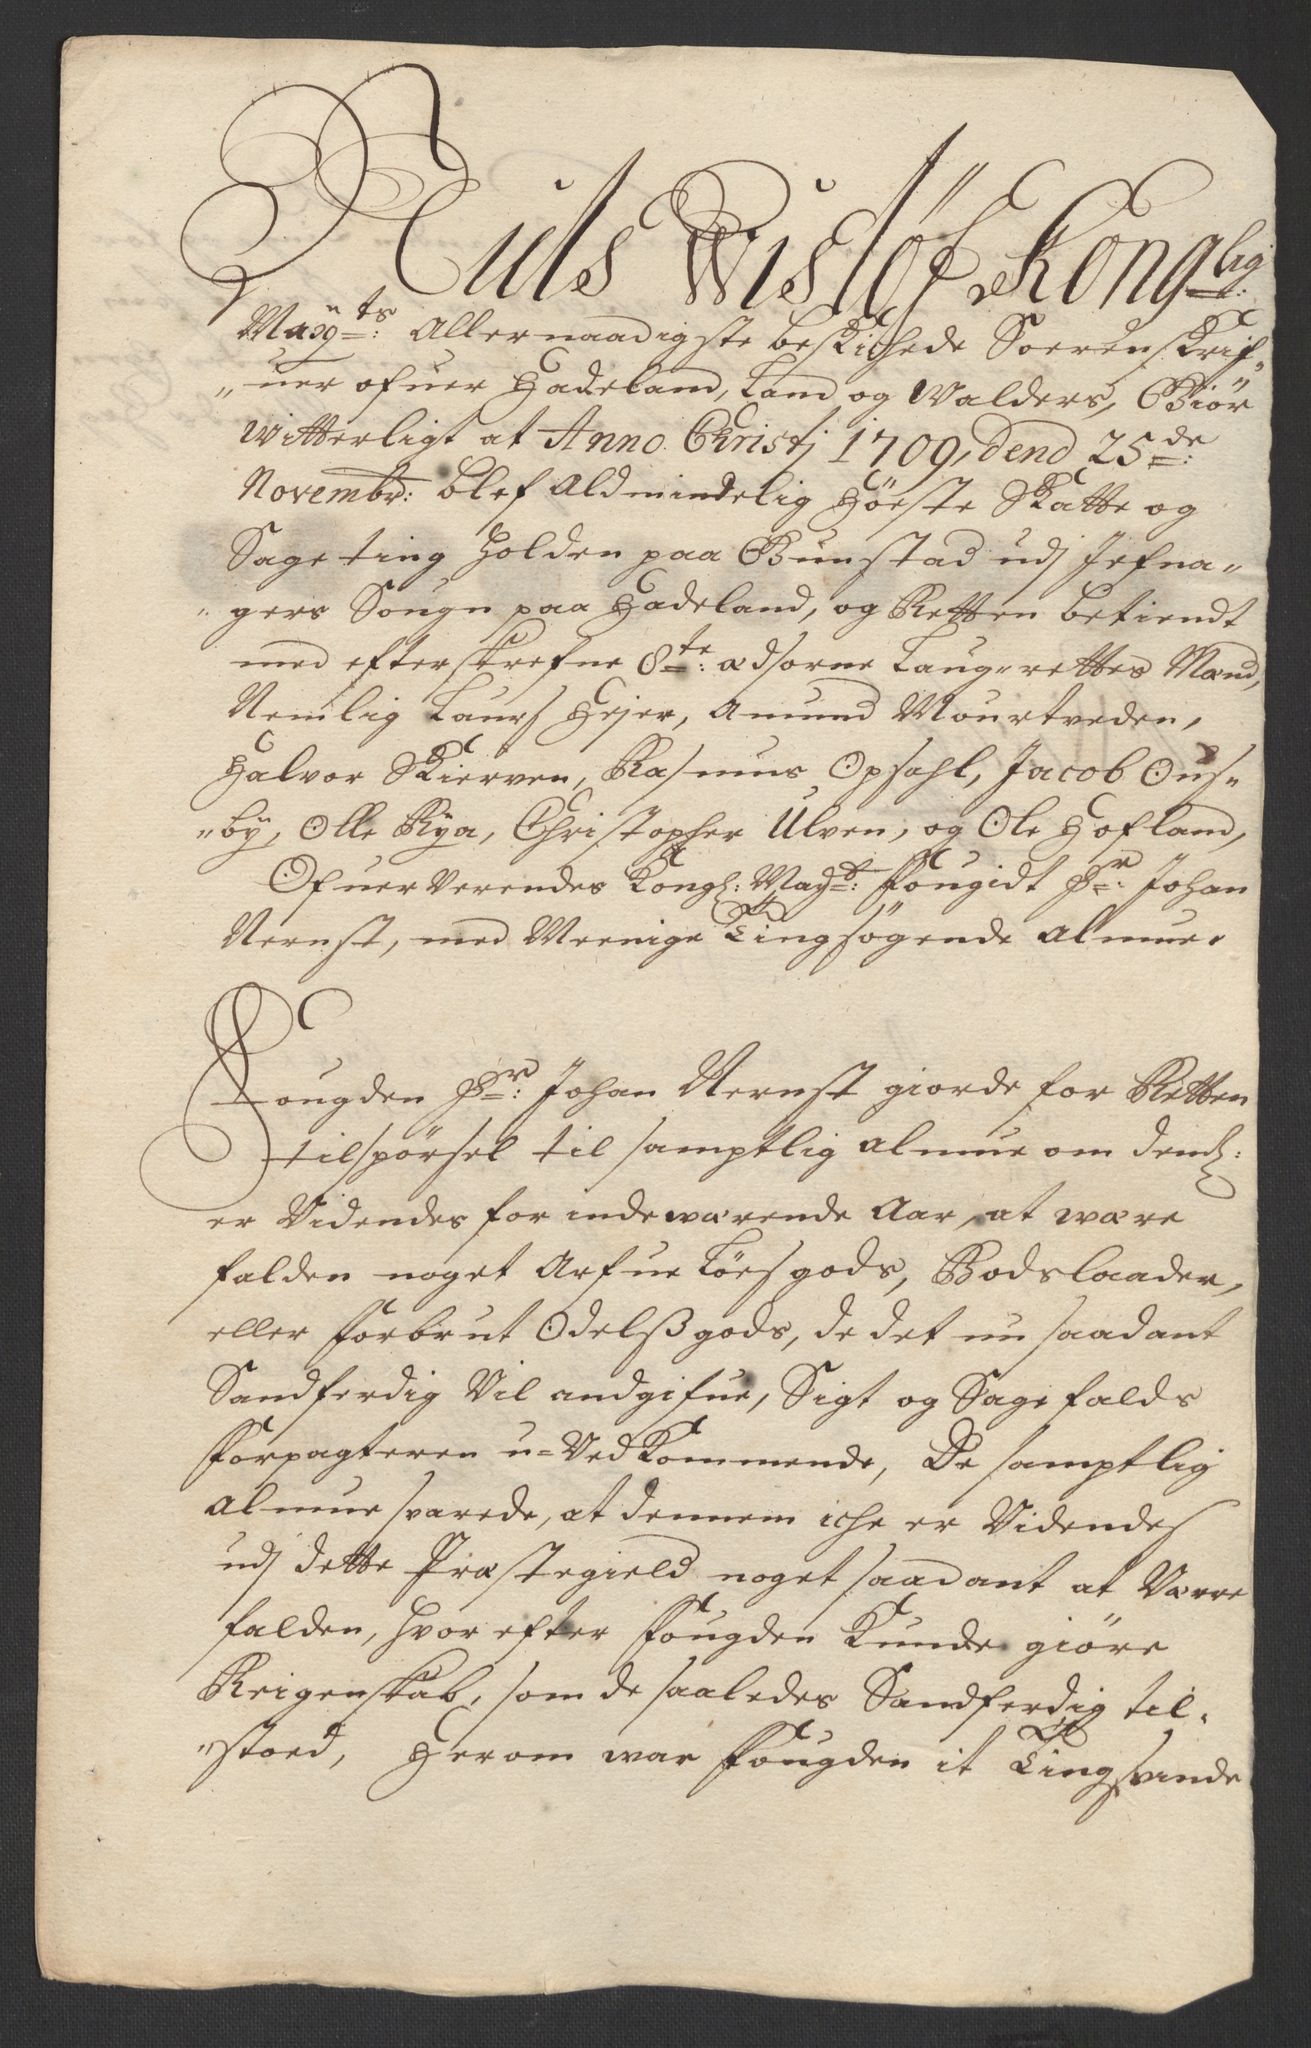 Niels Wisløf Konglig:
Mayts: Allernaadigste beskichede Soerenskrif-
-uer ofuer Hadeland, Land og Walders, Giør
Witterligt at Anno Christj 1709, dend 25de:
Novembr: blef Aldmindelig Høste Skatte og
Sage ting holden paa Bunstad udj Jefna-
-gers Sougn paa Hadeland, og Retten betiendt
med efterskrefne 8te: ædsorne Laug-rettes Mænd,
Nemlig Laurs Hejer, Amund Mourtveden,
Halvor Skierven, Rasmus Opsahl, Jacob Ous-
-by, Olle Rya, Christopher Ulven, og Ole Hofland,
Ofuerverendes Kongl: Mayts: Fougidt Hr: Johan
Nernst, med Meenige Tingsøgende Almue.
Fougden Hr: Johan Nernst giorde for Retten
tilspørsel til samptlig Almue om dem:
er Videndes for indewærende Aar, at wære
falden noget Arfueløesgods, Bødslaader,
eller forbrut Odelsgods, de det nu saadant
Sandferdig Vil andgifue, Sigt og Sagefalds
Forpagteren u-Vedkommende, De samptlig
Almue svarede, at dennem iche er Videndes
udj dette Præstegield noget saadant at Værre
falden, hvorefter Fougden kunde giøre
Reigenskab, som de saaledes Sandferdig til-
-stoed, Herom war Fougden it Tingsvinde